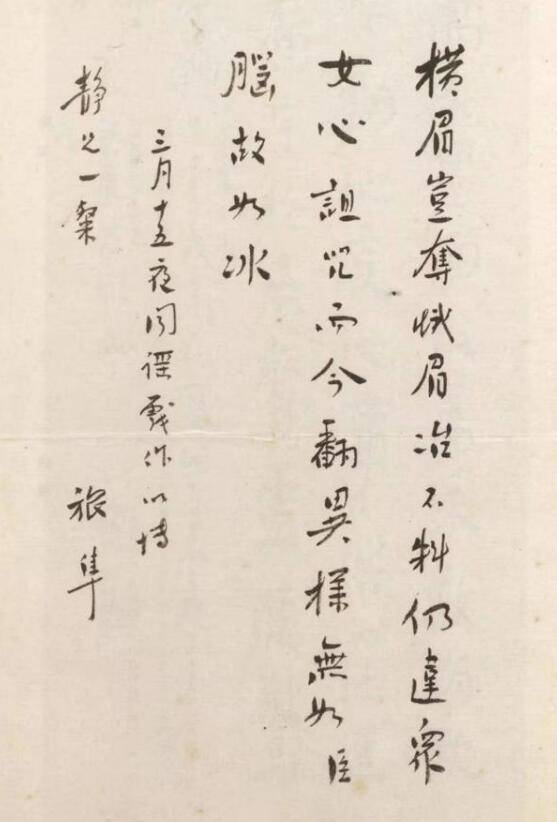 横眉豈奪蛾眉冶不料仍違眾
女心詛咒而今翻異樣無如臣
腦故如冰
三月十五夜聞謠戲作以博
靜兄一粲
旅隼